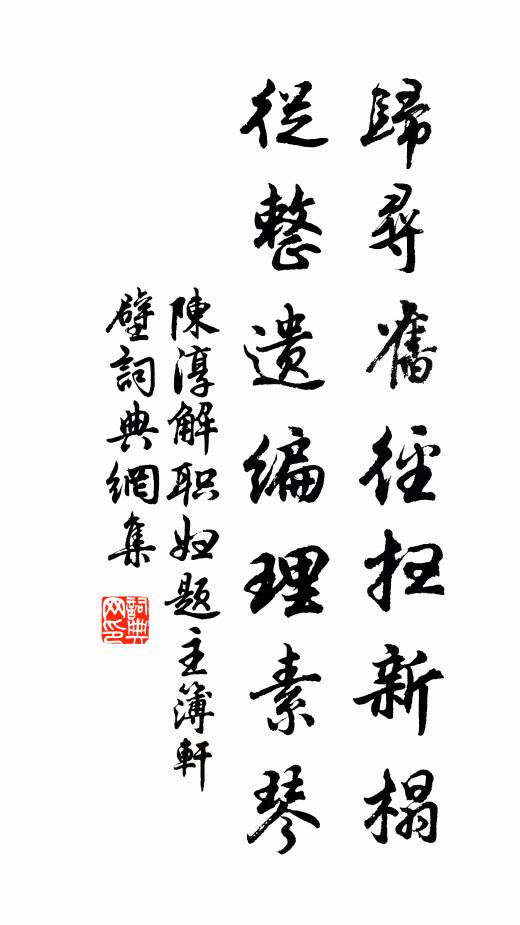 歸尋舊徑扫新榻
從整遺编理素琴
陳淳解职妇題主簿軒
壁詞典網集
詞典网印